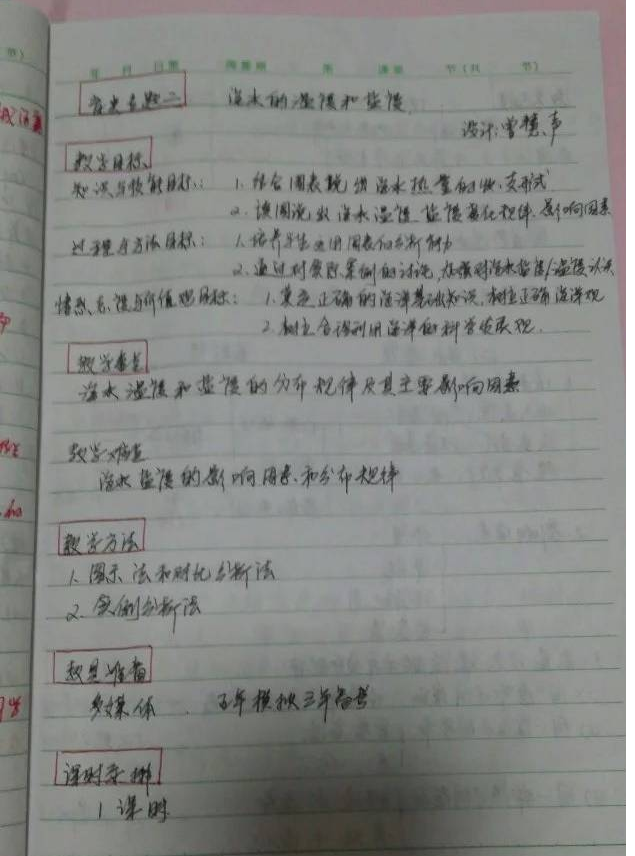 年 月 日星期 第 课章 节(共 节)
海水的温度和盐度
设计:曾慧声
教学目标
知识与技能目标: 1. 结合图表说出海水热量的收、支形式
2. 读图说出海水温度、盐度变化规律、影响因素
过程与方法目标: 1. 培养学生运用图表的分析能力
2. 通过对实际案例的讨论,加强对海水盐度/温度认识
情感、态度与价值观目标: 1. 奠定正确的海洋基础知识,树立正确海洋观
2. 树立合理利用海洋的科学发展观.
教学重点
海水温度和盐度的分布规律及其主要影响因素
教学难点
海水盐度的影响因素和分布规律
教学方法
1. 图示法和对比分析法
2. 案例分析法
教具准备
多媒体 . 五年模拟三年备考
课时安排
1课时